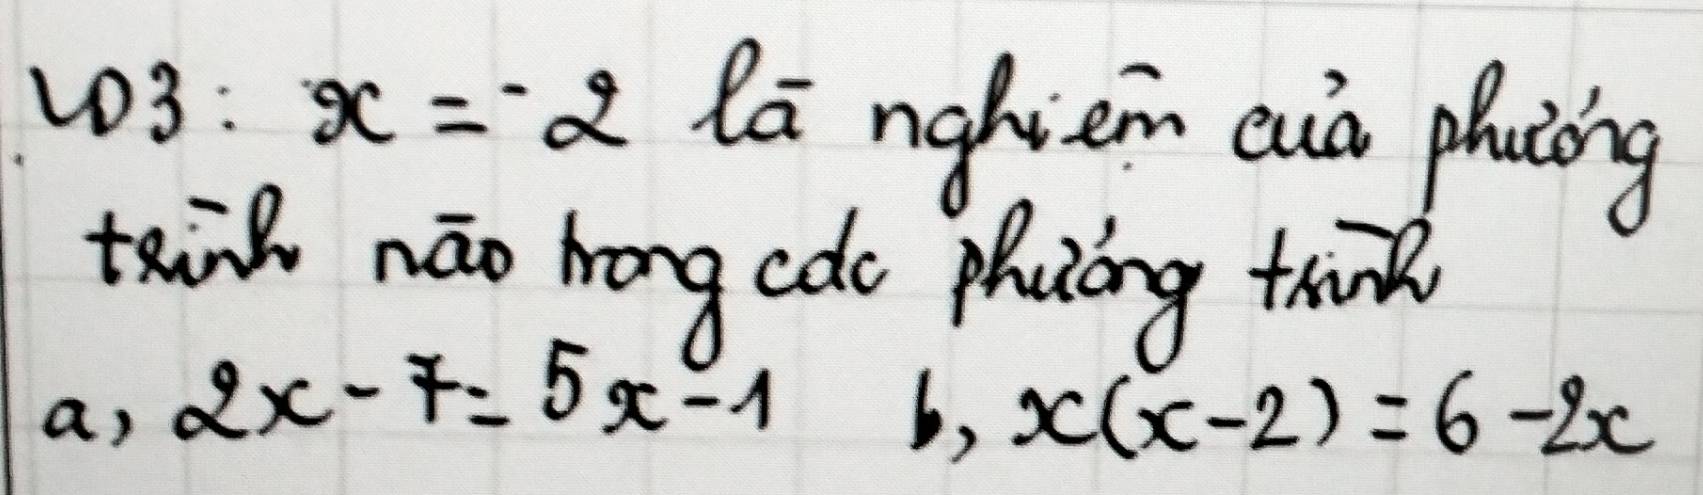 VD3: x = -2 là nghiệm của phương
trình nào trong các phương trình
a, 2x - 7 = 5x - 1 b, x(x - 2) = 6 - 2x